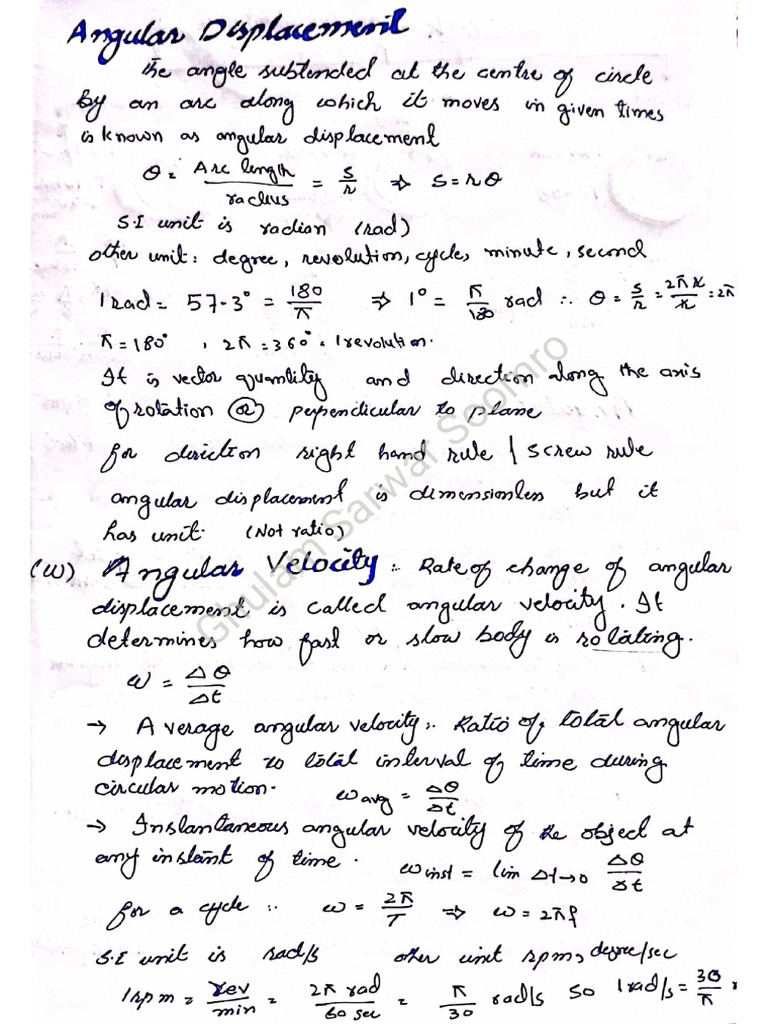 Angular Displacement
The angle subtended at the centre of circle
By an arc along which it moves in given times
is known as angular displacement
θ = Arc length / radius = S/r ⇒ S = rθ
S.I unit is radian (rad)
other unit: degree, revolution, cycle, minute, second
1 rad = 57.3° = 180/π ⇒ 1° = π/180 rad ∴ θ = S/r = 2πr/r = 2π
π = 180° , 2π = 360° = 1 revolution.
It is vector quantity and direction along the axis
of rotation (or) perpendicular to plane
for direction right hand rule / screw rule
angular displacement is dimensionless but it
has unit. (Not ratio)
(w) Angular Velocity :. Rate of change of angular
displacement is called angular velocity. It
determines how fast or slow body is rotating.
w = Δθ/Δt
→ Average angular velocity:. Ratio of total angular
displacement to total interval of time during
circular motion. w avg = Δθ/Δt
→ Instantaneous angular velocity of the object at
any instant of time. w inst = lim Δt→0 Δθ/Δt
for a cycle :. w = 2π/T ⇒ w = 2πf
S.I unit is rad/s other unit rpm, degree/sec
1 rpm = rev/min = 2π rad/60 sec = π/30 rad/s so 1 rad/s = 30/π
Ghulam Sarwar Soomro